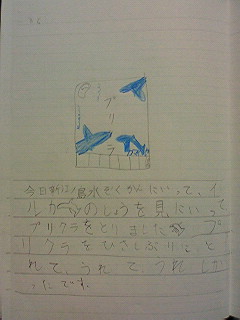 プリクラ
今日新江ノ島水ぞくかんにいって、イ
ルカ のしょうを見にいって
プリクラをとりました プ
リクラをひさしぶりに、と
れて、うれて、うれしか
ったです。